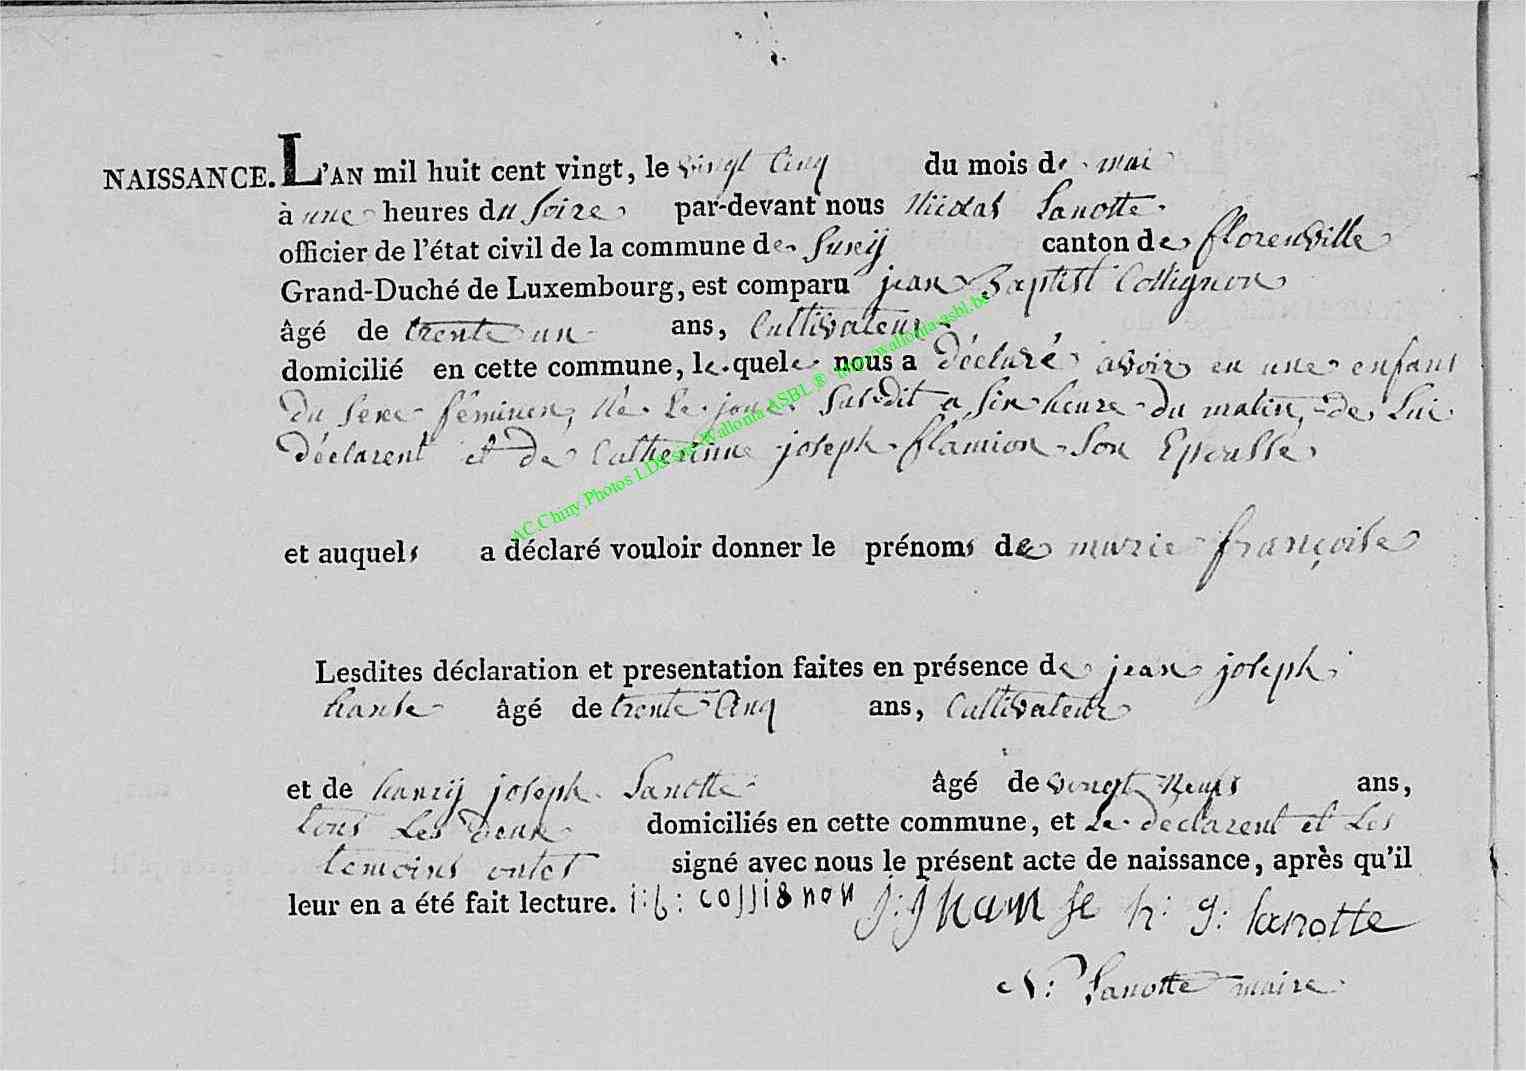 NAISSANCE. L'AN mil huit cent vingt, le vingt Cinq du mois de mai
à une heures du Soire par-devant nous Nicolas Lanotte
officier de l'état civil de la commune de Suxij canton de florenville
Grand-Duché de Luxembourg, est comparu jean Baptist Collignon
âgé de trente un ans, Cultivateur
domicilié en cette commune, le quel nous a déclaré avoir eu une enfant
du Sexe féminen, né Le jour Susdit a Six heure du matin, de Lui
déclarent et de Catherinne joseph flamion Son Epousse
et auquels a déclaré vouloir donner le prénoms de marie françoise
Lesdites déclaration et presentation faites en présence de jean joseph
hanse âgé de trente Cinq ans, Cultivateur
et de hanrij joseph Lanotte âgé de vingt Neufs ans,
tous Les deux domiciliés en cette commune, et Le déclarent et Les
temoins ontet signé avec nous le présent acte de naissance, après qu'il
leur en a été fait lecture. j: b: collignon j: j hanse h: j: lanotte
N: Lanotte maire
AC.Chiny.Photos LDS wallonia ASBL ® wallonia-asbl.be